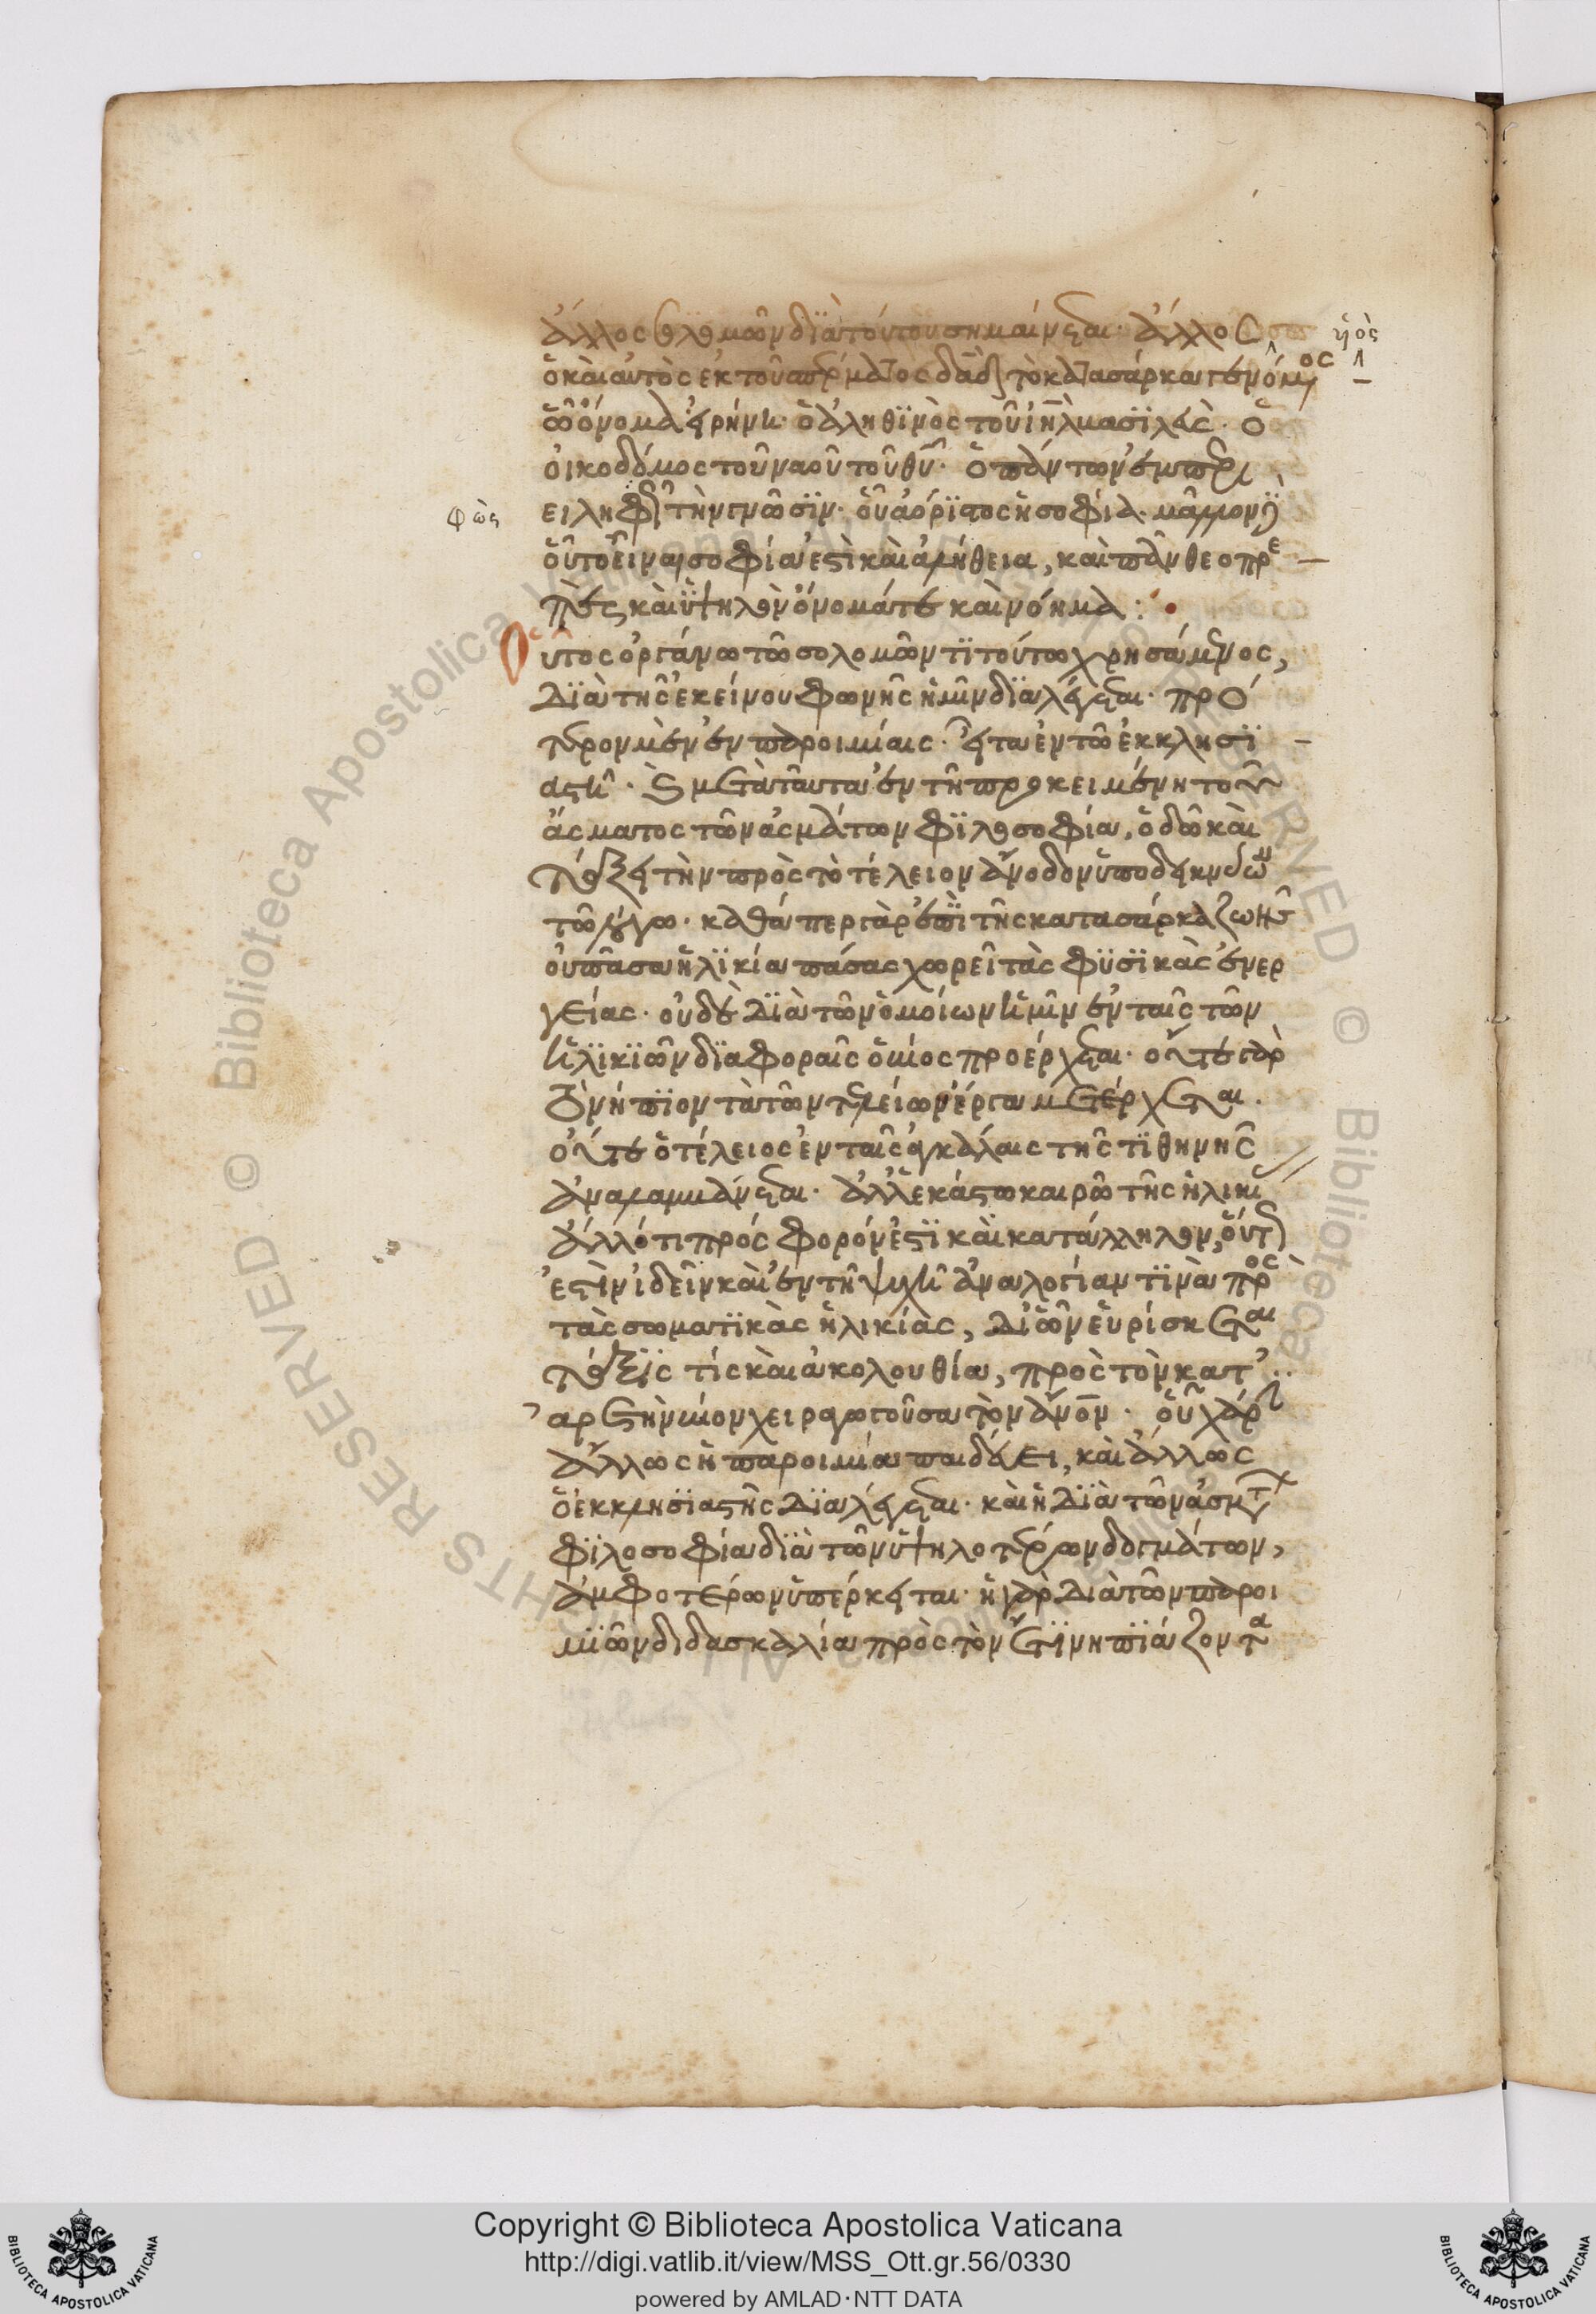 ἄλλος σολομῶν διὰ τούτου σημαίνεται· ἄλλος
ηὸς
ὁ καὶ αὐτὸς ἐκ τοῦ σπέρματος δαδ τὸ κατὰ σάρκα γενόμενος
ὧ ὄνομα εἰρήνη· ὁ ἀληθϊνὸς τοῦ ιηλ βασϊλεὺς· ὁ
οἰκοδόμος τοῦ ναοῦ τοῦ θυ· ὁ πάντων ἐμπερι
φὼς
ειληφὼς τὴν γνῶσϊν· οὗ ἀόρϊστος ἡ σοφία· μᾶλλον δὲ
οὗ τὸ εἶναι σοφία ἐστὶ καὶ ἀλήθεια, καὶ πᾶν θεοπρε
πές καὶ ὑψηλὸν ὄνομά τε καὶ νόημα :
Οὗτος ὀργάνω τῶ σολομῶντϊ τούτω χρησάμενος,
Δϊὰ τῆς ἐκείνου φωνῆς ἡμῖν δϊαλέγεται· πρό
τερον μὲν ἐν παροιμίαις· εἶτα ἐν τῶ ἐκκλησϊ
αστῆ· καὶ μετὰ ταῦτα ἐν τῆ προκειμένη τοῦ
ἄσματος τῶν ἀσμάτων φϊλοσοφία, ὁδῶ καὶ
τάξει τὴν πρὸς τὸ τέλειον ἄνοδον ὑποδεικνύων
τῶ λόγω· καθάπερ γὰρ ἐπὶ τῆς κατα σάρκα ζωῆς
οὐ πᾶσα ἡλϊκία πάσας χωρεῖ τὰς φϋσϊκὰς ἐνερ
γείας· οὐδὲ Δϊὰ τῶν ὁμοίων ἡμῖν ἐν ταῖς τῶν
ἡλϊκϊῶν δϊαφοραῖς ὁ βίος προέρχεται· οὔτε γὰρ
τὸ νήπϊον τὰ τῶν τελείων ἔργα μετέρχεται.
οὔτε ὁ τέλειος ἐν ταῖς ἀγκάλαις τῆς τϊθηνῆς
ἀναλαμβάνεται· ἀλλ' ἑκάστω καιρῶ τῆς ἡλικίας
ἄλλό τι πρόσφορόν ἐστϊ καὶ κατάλληλον, οὕτως
ἐστὶν ἰδεῖν καὶ ἐν τῆ ψυχῆ ἀναλογίαν τϊνὰ πρὸς
τὰς σωματϊκὰς ἡλικίας, Δι' ὧν εὑρίσκεται
τάξϊς τίς καὶ ἀκολουθία, πρὸς τὸν κατ'
ἀρετὴν βίον χειραγωγοῦσα τὸν ἄνον· οὗ χάριν
ἄλλως ἡ παροιμία παιδεύει, καὶ ἄλλως
ὁ ἐκκλησϊαστὴς Δϊαλέγεται· καὶ ἡ Δϊὰ τῶν ἀσμάτων
φϊλοσοφία δϊὰ τῶν ὑψηλοτέρων δογμάτων,
ἀμφοτέρων ὑπέρκειται· ἡ γὰρ Διὰ τῶν παροι
μϊῶν διδασκαλία πρὸς τὸν ἔτϊ νηπϊάζοντα